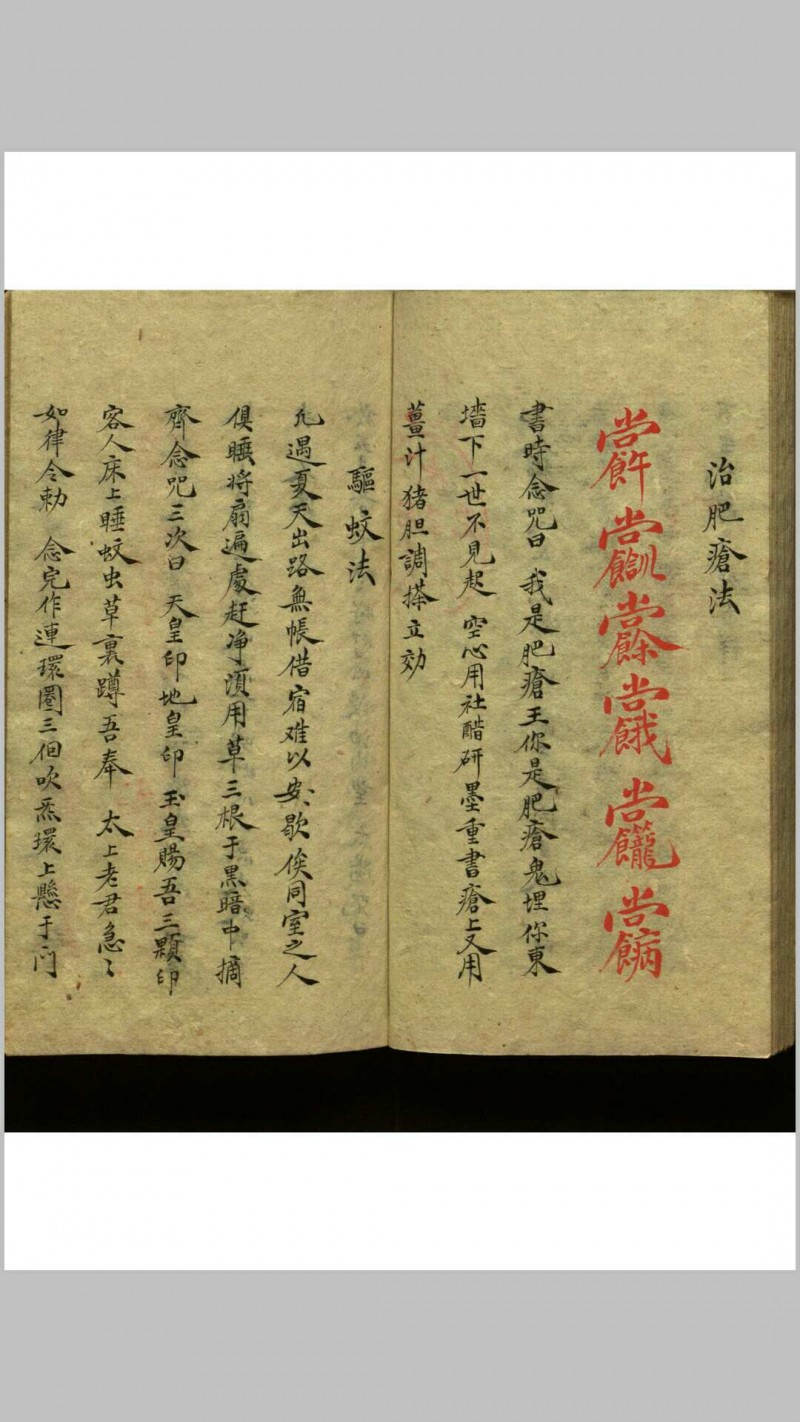 治肥瘡法
書時念咒曰 我是肥瘡王你是肥瘡鬼埋你東
墻下一世不見起 空心用社醋研墨重書瘡上又用
薑汁猪胆調搽立効
驅蚊法
凡遇夏天出路無帳借宿难以安歇俟同室之人
俱睡将扇遍處赶净須用草三根于黑暗中摘
齊念咒三次曰 天皇印地皇印玉皇賜吾三顆印
客人床上睡蚊虫草裏蹲吾奉 太上老君急〻
如律令勅 念完作連環圈三個吹炁環上懸于门